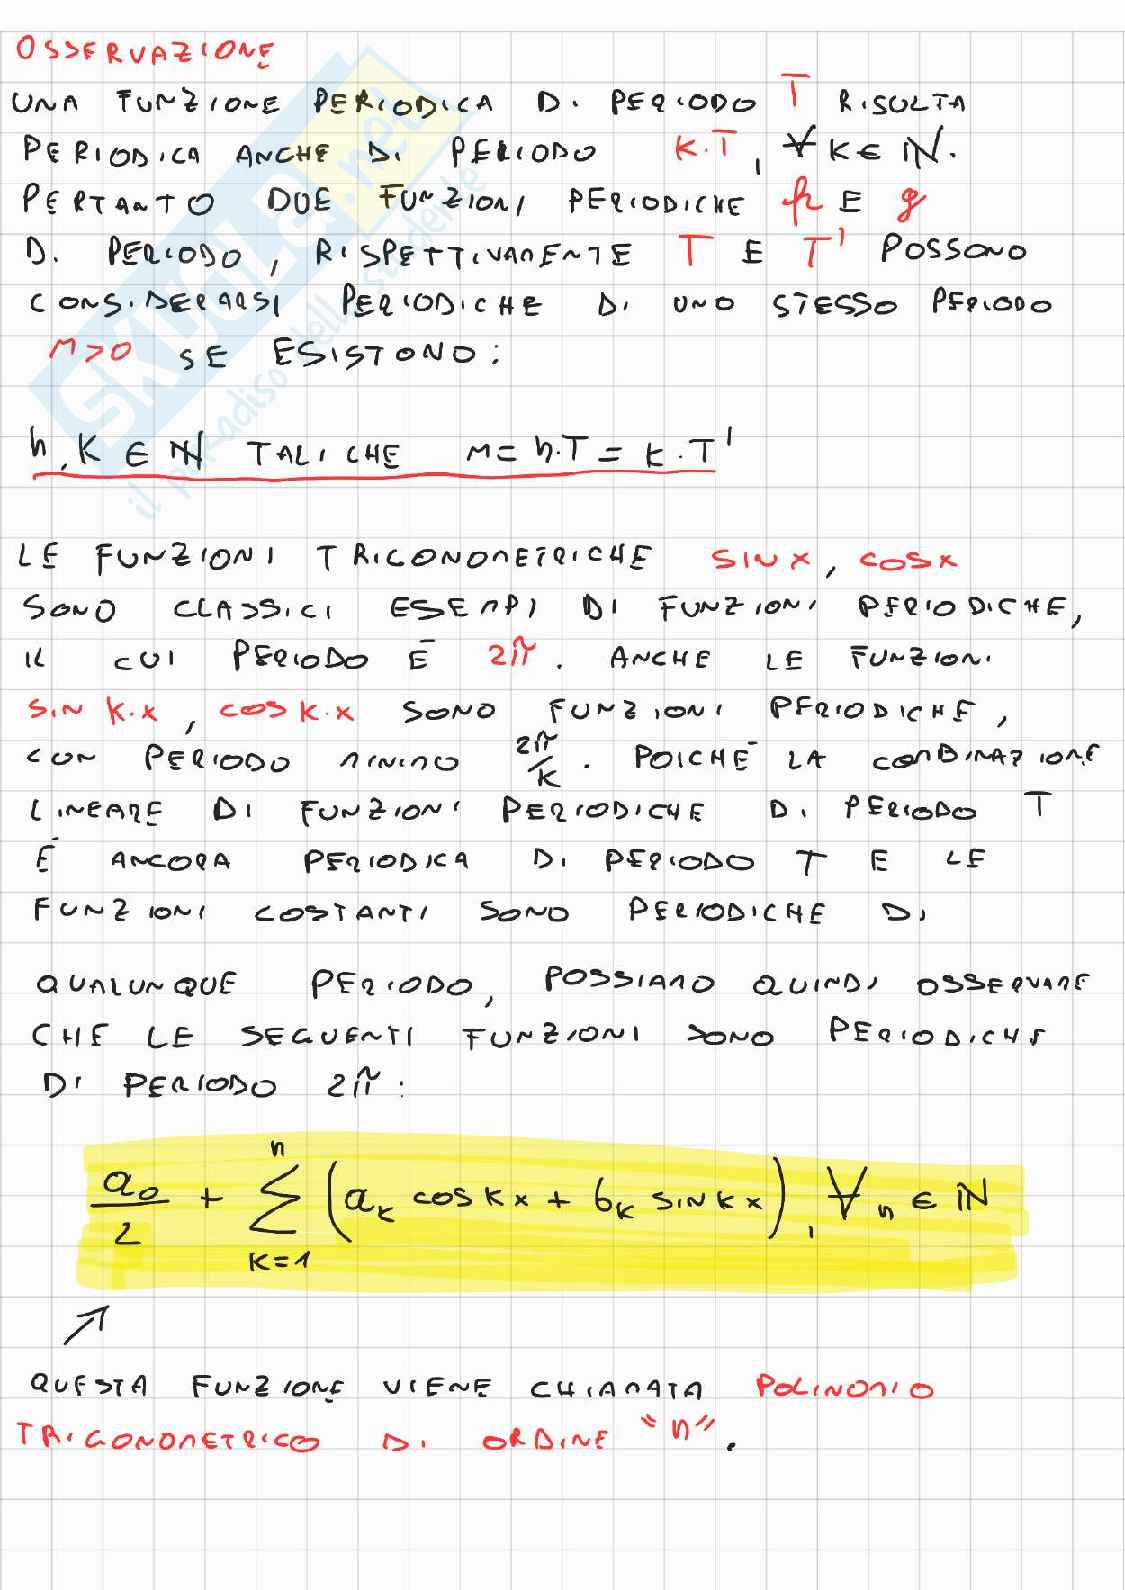 OSSERVAZIONE
UNA FUNZIONE PERIODICA DI PERIODO T RISULTA
PERIODICA ANCHE DI PERIODO K·T, ∀ K ∈ ℕ.
PERTANTO DUE FUNZIONI PERIODICHE f E g
DI PERIODO, RISPETTIVAMENTE T E T' POSSONO
CONSIDERARSI PERIODICHE DI UNO STESSO PERIODO
M>0 SE ESISTONO:
h, K ∈ ℕ TALI CHE M = h·T = K·T'
LE FUNZIONI TRIGONOMETRICHE SIN X, COS X
SONO CLASSICI ESEMPI DI FUNZIONI PERIODICHE,
IL CUI PERIODO È 2π. ANCHE LE FUNZIONI
SIN K·X, COS K·X SONO FUNZIONI PERIODICHE,
CON PERIODO MINIMO 2π/K. POICHÉ LA COMBINAZIONE
LINEARE DI FUNZIONI PERIODICHE DI PERIODO T
È ANCORA PERIODICA DI PERIODO T E LE
FUNZIONI COSTANTI SONO PERIODICHE DI
QUALUNQUE PERIODO, POSSIAMO QUINDI OSSERVARE
CHE LE SEGUENTI FUNZIONI SONO PERIODICHE
DI PERIODO 2π:
a₀/2 + ∑_{K=1}^{n} (a_K COS KX + b_K SIN KX), ∀ n ∈ ℕ
QUESTA FUNZIONE VIENE CHIAMATA POLINOMIO
TRIGONOMETRICO DI ORDINE "n".
SKUOLA.net
il paradiso dello studente